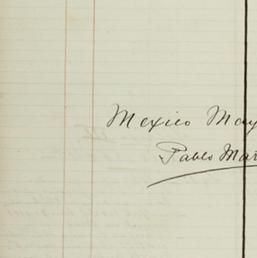 Mexico May
Pablo Mar